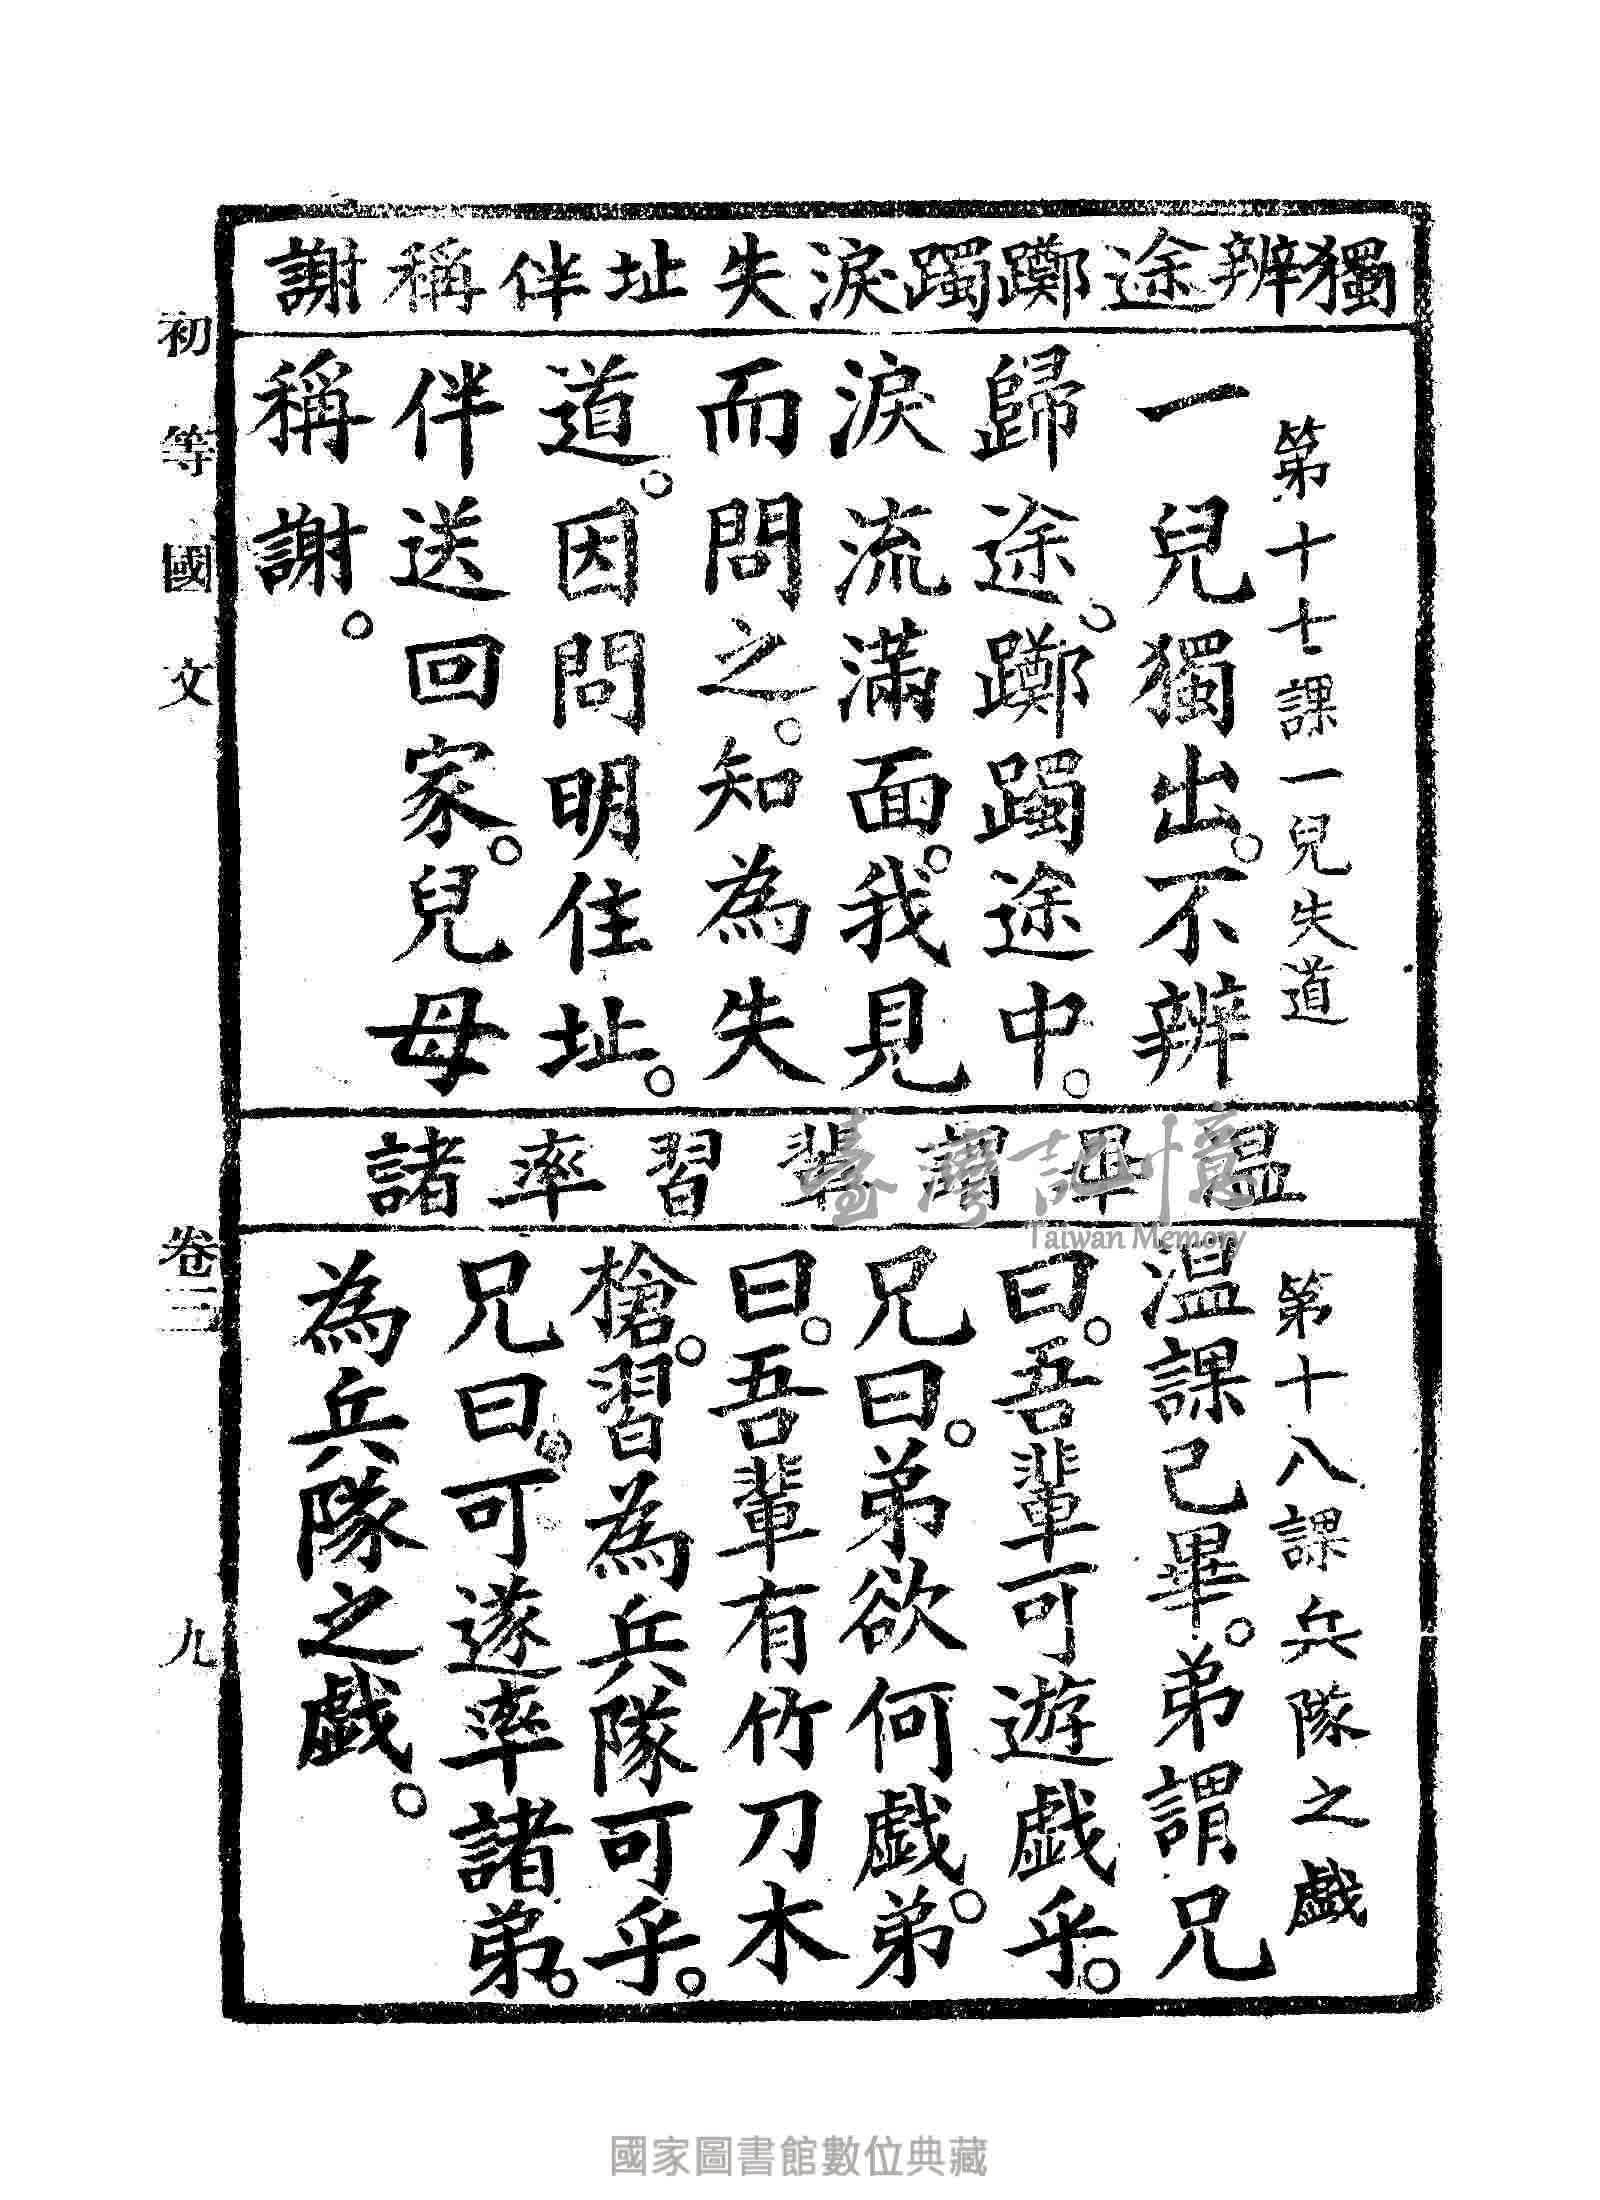 獨辨途躑躅淚失址伴稱謝
第十七課一兒失道
一兒獨出。不辨
歸途。躑躅途中。
淚流滿面。我見
而問之。知為失
道。因問明住址。
伴送回家。兒母
稱謝。
溫畢謂輩習率諸
第十八課兵隊之戲
温課己畢。弟謂兄
曰。吾輩可遊戲乎。
兄曰。弟欲何戲。弟
曰。吾輩有竹刀木
槍。習為兵隊可乎。
兄曰。可遂率諸弟。
為兵隊之戲。
初等國文
卷三
九
臺灣記憶
Taiwan Memory
國家圖書館數位典藏